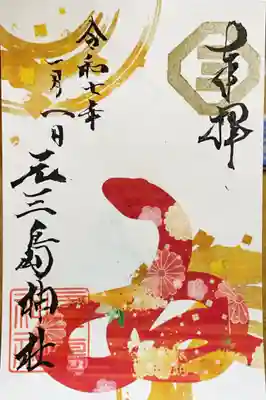 奉拝
三
令和七年
一月八日
元三島神社